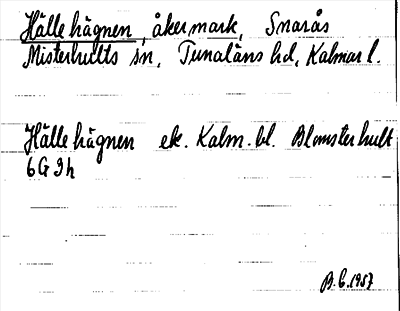 Hälle hägnen, åkermark, Snarås
Misterhults sn, Tunaläns hd, Kalmar l.
Hälle hägnen ek. Kalm. bl. Blomsterhult
6G3h
B.C. 1957